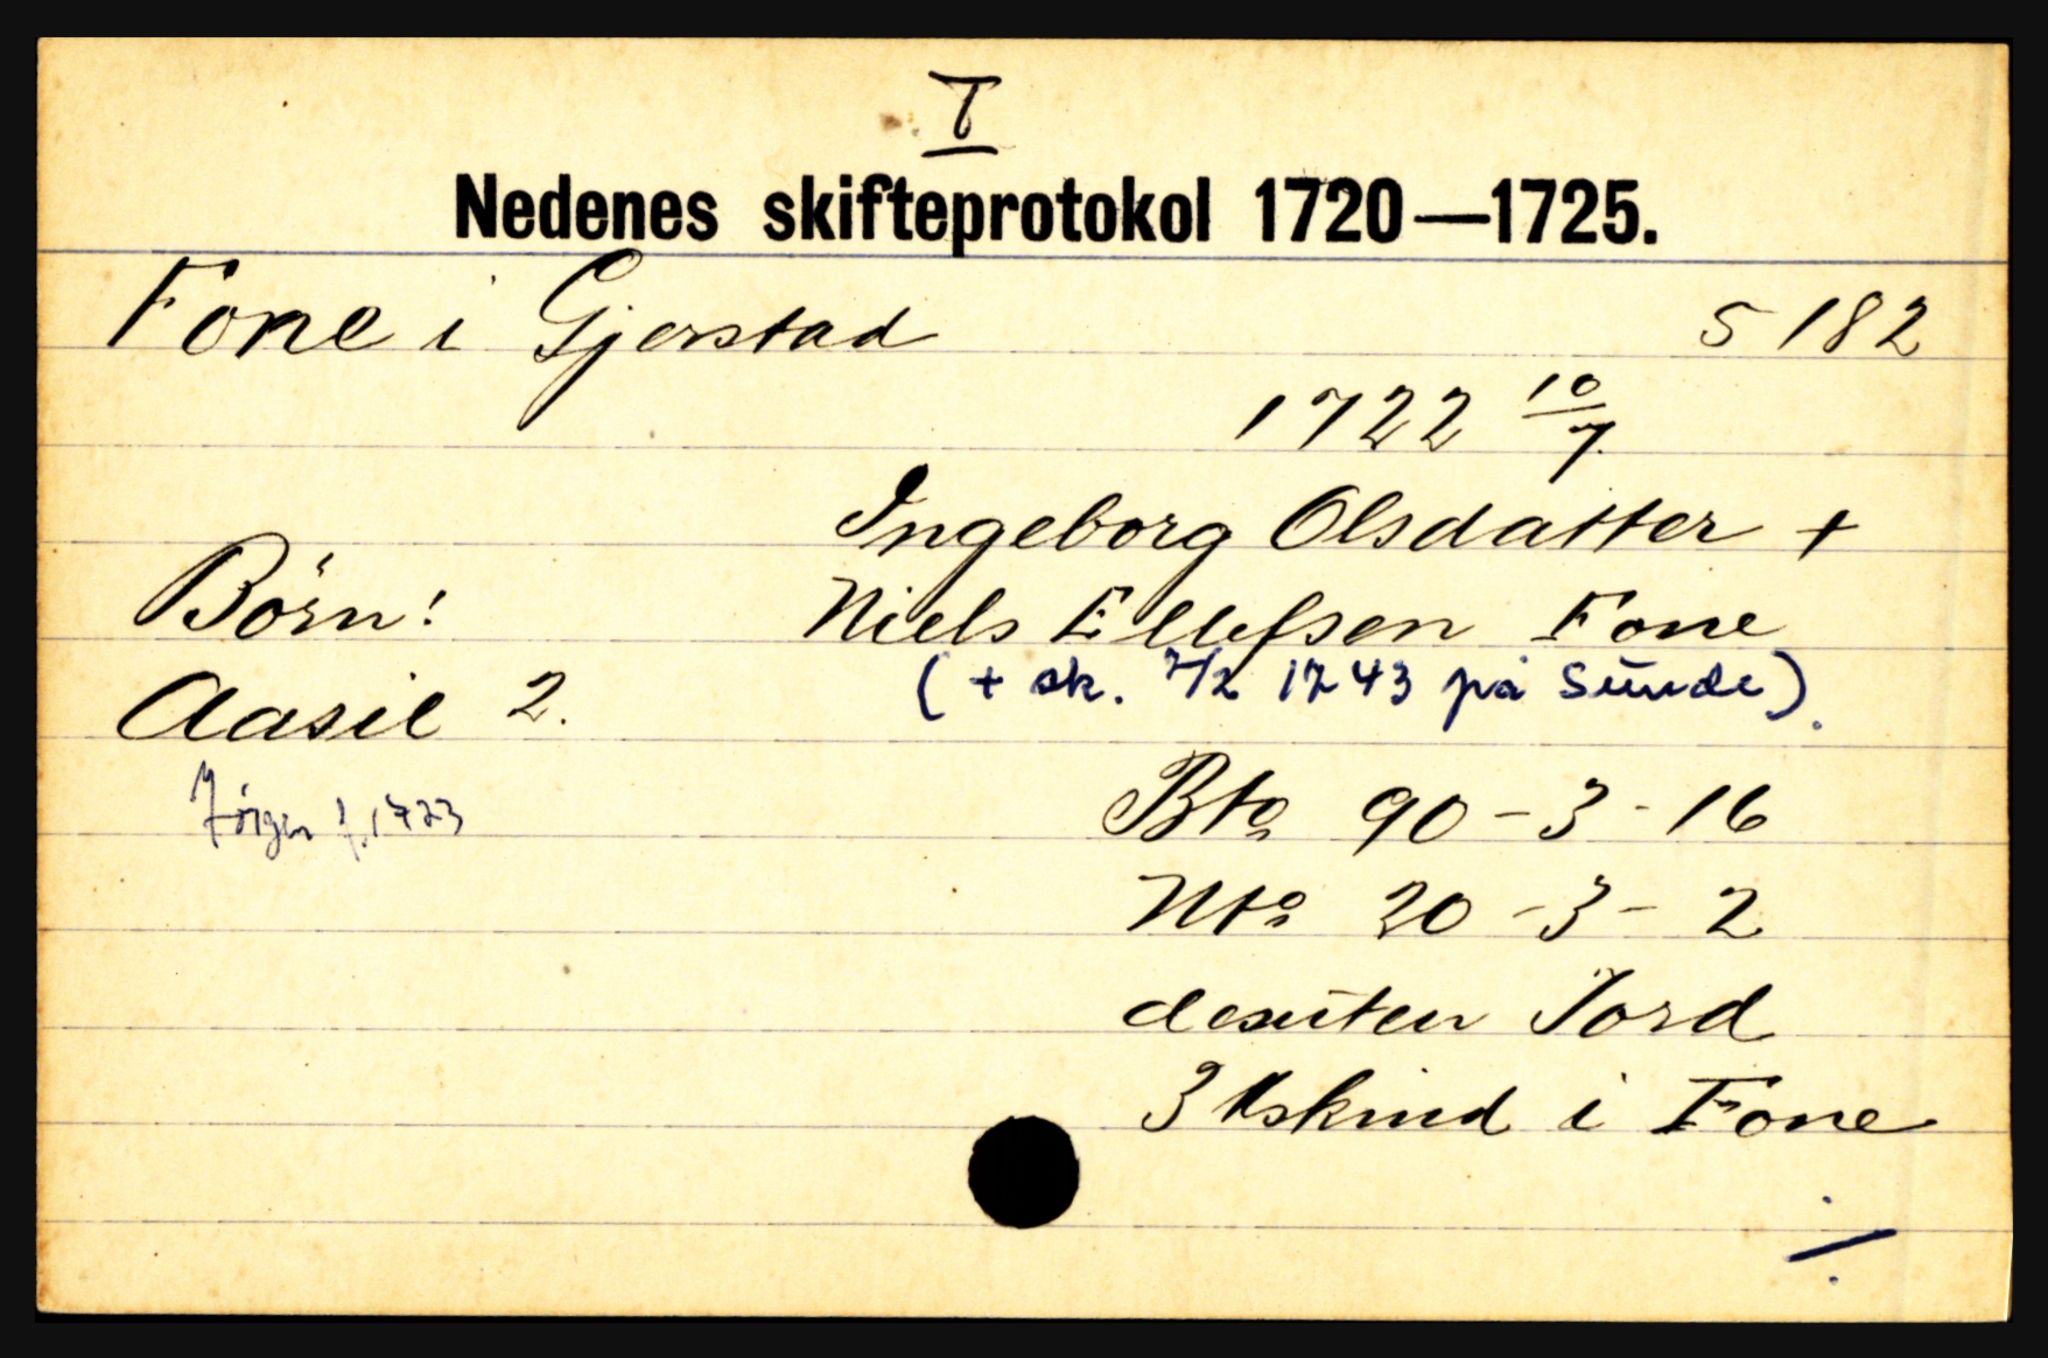 I
Nedenes skifteprotokol 1720—1725.
Fone i Gjerstad S 182
1722 10/7.
Ingeborg Olsdatter +
Börn: Niels Ellefsen Fone
(+ sk. 7/2 1743 på Sunde).
Aasil 2.
Bto 90 - 3 - 16
Jörgen f. 1723
Nto 20 - 3 - 2
desuten Jord
3 kskind i Fone